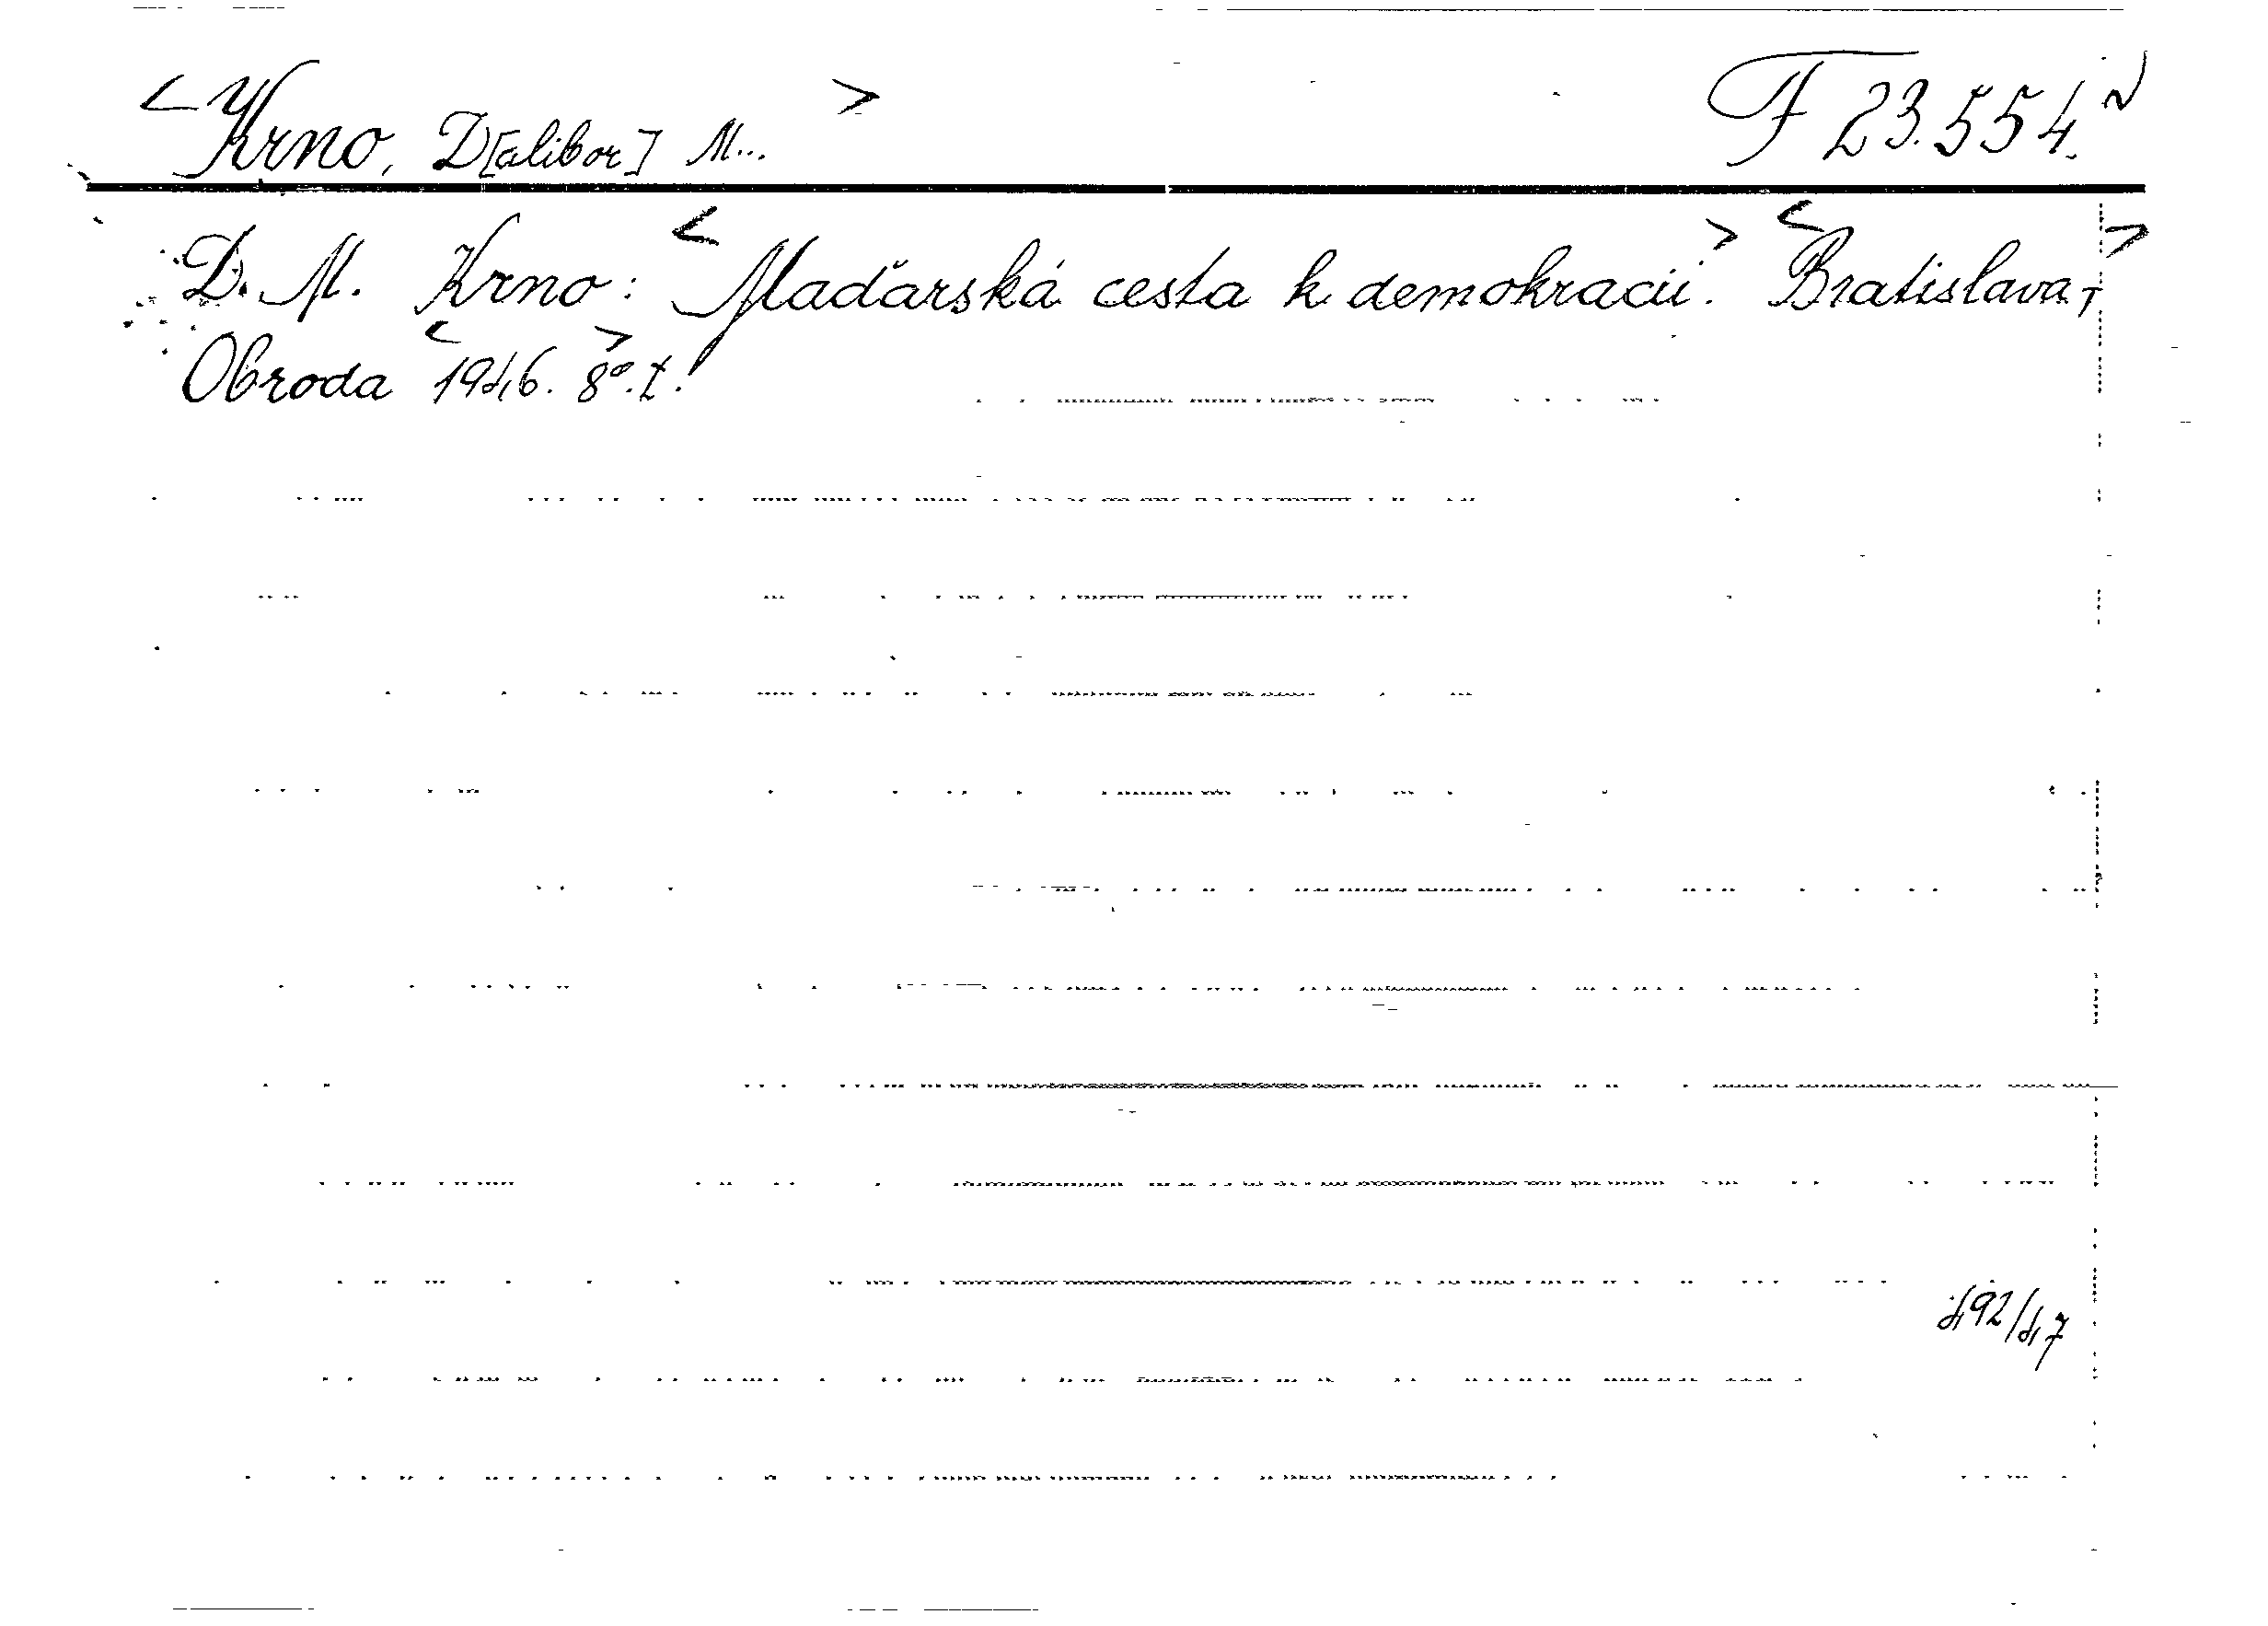 <Krno, D[alibor] M...> F 23.554.
D. M. Krno: <Maďarská cesta k demokracii.> <Bratislava,>
Obroda <1946.> 8°. I.
492/47